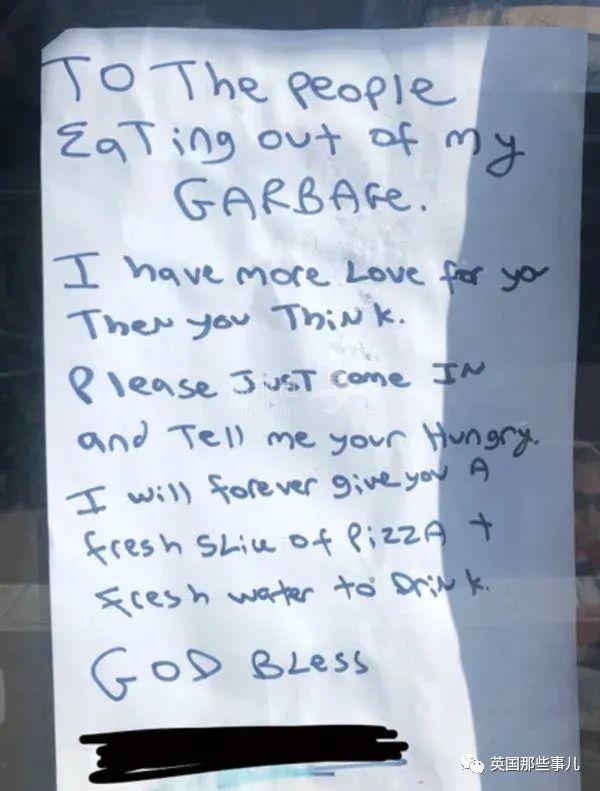 TO The PeoPle
EaTing out of my
GARBAGe.
I have more Love for you
Then you Think.
Please JusT come IN
and Tell me your Hungry.
I will forever give you A
fresh SLice of PizzA +
fresh water to Drink.
GOD BLess
英国那些事儿